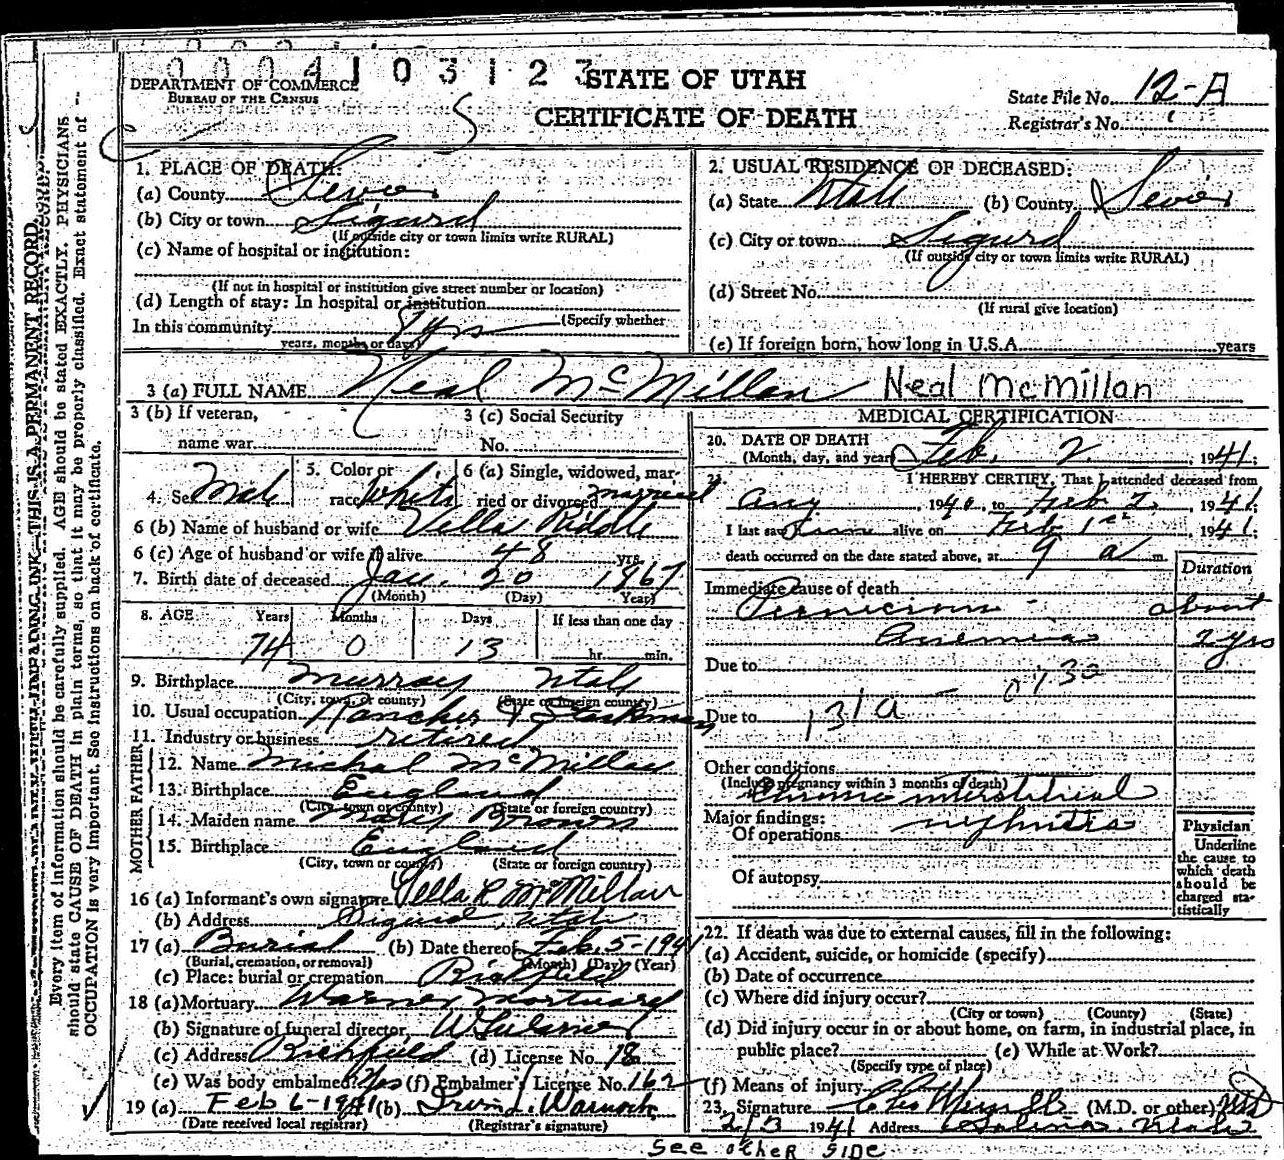 0004103123
DEPARTMENT OF COMMERCE
BUREAU OF THE CENSUS
STATE OF UTAH
CERTIFICATE OF DEATH
State File No. 12-A
Registrar's No.
Every item of information should be carefully supplied. AGE should be stated EXACTLY. PHYSICIANS
should state CAUSE OF DEATH in plain terms, so that it may be properly classified. Exact statement of
OCCUPATION is very important. See instructions on back of certificate.
THIS IS A PERMANENT RECORD.
1. PLACE OF DEATH:
(a) County Sevier
(b) City or town Sigurd
(If outside city or town limits write RURAL)
(c) Name of hospital or institution:
(If not in hospital or institution give street number or location)
(d) Length of stay: In hospital or institution
(Specify whether
In this community yrs
years, months or days)
2. USUAL RESIDENCE OF DECEASED:
(a) State Utah (b) County Sevier
(c) City or town Sigurd
(If outside city or town limits write RURAL)
(d) Street No.
(If rural give location)
(e) If foreign born, how long in U.S.A. years
3 (a) FULL NAME Neal McMillan Neal McMillan
3 (b) If veteran,
name war
3 (c) Social Security
No.
4. Sex Male
5. Color or
race White
6 (a) Single, widowed, mar-
ried or divorced married
6 (b) Name of husband or wife Vella Riddle
6 (c) Age of husband or wife if alive 48 yrs.
7. Birth date of deceased Jan. 20 1867
(Month) (Day) Year)
8. AGE Years Months Days If less than one day
74 0 13 hr. min.
9. Birthplace Murray Utah
(City, town, or county) (State or foreign country)
10. Usual occupation Rancher & Stockman
11. Industry or business retired
FATHER
12. Name Michal McMillan
13. Birthplace England
(City, town or county) (State or foreign country)
MOTHER
14. Maiden name Mary Brown
15. Birthplace England
(City, town or county) (State or foreign country)
16 (a) Informant's own signature Vella R McMillan
(b) Address Sigurd, Utah
17 (a) Burial (b) Date thereof Feb. 5-1941
(Burial, cremation, or removal) (Month) (Day) (Year)
(c) Place: burial or cremation Richfield
18 (a) Mortuary Mortuary
(b) Signature of funeral director
(c) Address Richfield (d) License No. 18
(e) Was body embalmed? Yes (f) Embalmer's License No. 162
19 (a) Feb 6-1941 (b) Warnock
(Date received local registrar) (Registrar's signature)
MEDICAL CERTIFICATION
20. DATE OF DEATH
(Month, day, and year) Feb. 2, 1941;
21. I HEREBY CERTIFY, That I attended deceased from
Aug, 1940, to Feb 2, 1941;
I last saw alive on Feb 1st, 1941;
death occurred on the date stated above, at 9 a m.
Duration
Immediate cause of death
Pernicious about
Anemia 2 yrs
Due to
Due to 131a
Other conditions
(Include pregnancy within 3 months of death)
Chronic interstitial
Major findings: nephritis
Of operations
Of autopsy
Physician
Underline
the cause to
which death
should be
charged sta-
tistically
22. If death was due to external causes, fill in the following:
(a) Accident, suicide, or homicide (specify)
(b) Date of occurrence
(c) Where did injury occur?
(City or town) (County) (State)
(d) Did injury occur in or about home, on farm, in industrial place, in
public place? (e) While at Work?
(Specify type of place)
(f) Means of injury
23. Signature (M.D. or other) MD
2/3 1941 Address Salina, Utah
See other SIDE